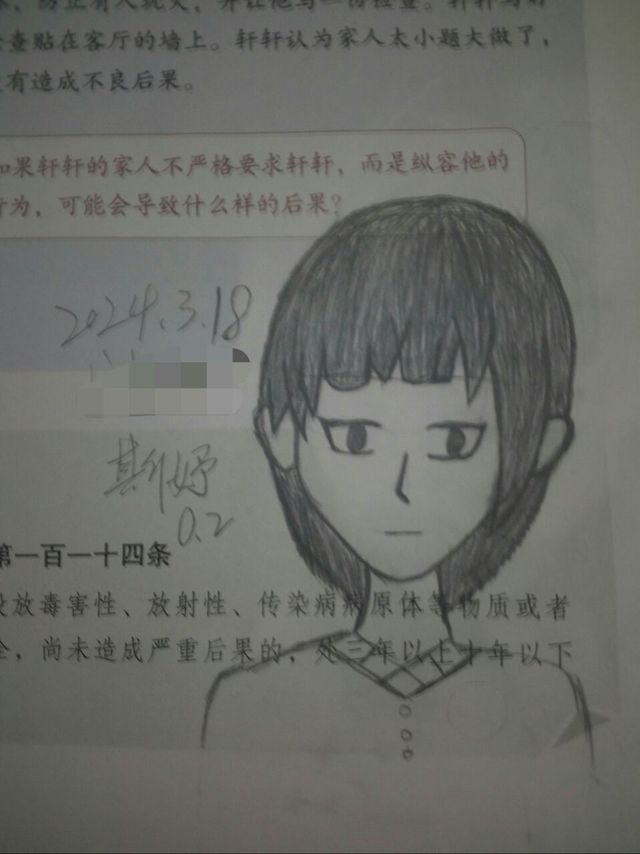 查贴在客厅的墙上。轩轩认为家人太小题大做了，
有造成不良后果。
如果轩轩的家人不严格要求轩轩，而是纵容他的
行为，可能会导致什么样的后果？
2024.3.18
0.2
第一百一十四条
投放毒害性、放射性、传染病病原体等物质或者
全，尚未造成严重后果的，处三年以上十年以下